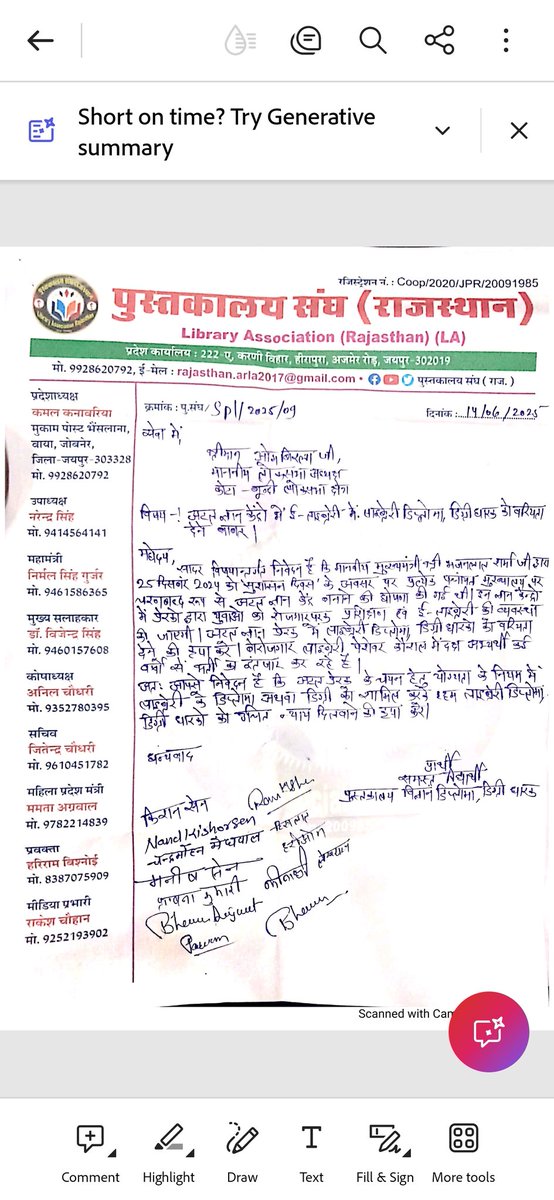 Short on time? Try Generative
summary
रजिस्ट्रेशन नं. : Coop/2020/JPR/20091985
पुस्तकालय संघ (राजस्थान)
Library Association (Rajasthan) (LA)
प्रदेश कार्यालय : 222-ए, करणी विहार, हीरापुरा, अजमेर रोड़, जयपुर-302019
मो. 9928620792, ई-मेल : rajasthan.arla2017@gmail.com • पुस्तकालय संघ ( राज. )
प्रदेशाध्यक्ष
कमल कनावरिया
मुकाम पोस्ट भैंसलाना,
वाया, जोबनेर,
जिला-जयपुर-303328
मो. 9928620792
उपाध्यक्ष
नरेन्द्र सिंह
मो. 9414564141
महामंत्री
निर्मल सिंह गुर्जर
मो. 9461586365
मुख्य सलाहकार
डॉ. विजेन्द्र सिंह
मो. 9460157608
कोषाध्यक्ष
अनिल चौधरी
मो. 9352780395
सचिव
जितेन्द्र चौधरी
मो. 9610451782
महिला प्रदेश मंत्री
ममता अग्रवाल
मो. 9782214839
प्रवक्ता
हरिराम बिश्नोई
मो. 8387075909
मीडिया प्रभारी
राकेश चौहान
मो. 9252193902
क्रमांक : पु.संघ/ Spl/2025/09
दिनांक : 14/06/2025
सेवा में,
श्रीमान ओम बिरला जी,
माननीय लोकसभा अध्यक्ष
कोटा - बून्दी लोकसभा क्षेत्र
विषय -! अटल ज्ञान केंद्रो में ई-लाइब्रेरी में लाइब्रेरी डिप्लोमा, डिग्री धारक को वरियता
देने बाबत्।
महोदय,
सादर विषयान्तर्गत निवेदन है कि माननीय मुख्यमंत्री श्री भजनलाल शर्मा जी द्वारा
25 दिसम्बर 2024 को 'सुशासन दिवस' के अवसर पर प्रत्येक पंचायत मुख्यालय पर
चरणबद्ध रूप से अटल ज्ञान केंद्र बनाने की घोषणा की गई थी। इन ज्ञान केन्द्रो
में प्रेरको द्वारा युवाओं को रोजगारपरक प्रशिक्षण एवं ई-लाइब्रेरी की व्यवस्था
की जाएगी। अटल ज्ञान प्रेरक में लाइब्रेरी डिप्लोमा, डिग्री धारको को वरियता
देने की कृपा करें। बेरोजगार लाइब्रेरी पेशेवर कौशल में दक्ष अभ्यर्थी कई
वर्षो से भर्ती का इंतजार कर रहे है।
अतः आपसे निवेदन है कि अटल प्रेरक के चयन हेतु योग्यता के नियम में
लाइब्रेरी के डिप्लोमा अथवा डिग्री को शामिल करके हम लाइब्रेरी डिप्लोमा,
डिग्री धारको को उचित न्याय दिलवाने की कृपा करें।
धन्यवाद
प्रार्थी
समस्त विद्यार्थी
पुस्तकालय विज्ञान डिप्लोमा, डिग्री धारक
किरान सेन
Nand Kishor Sen
चन्द्रमोहन मेघवाल
मनीष सेन
भावना कुमारी
Scanned with Cam
Comment
Highlight
Draw
Text
Fill & Sign
More tools